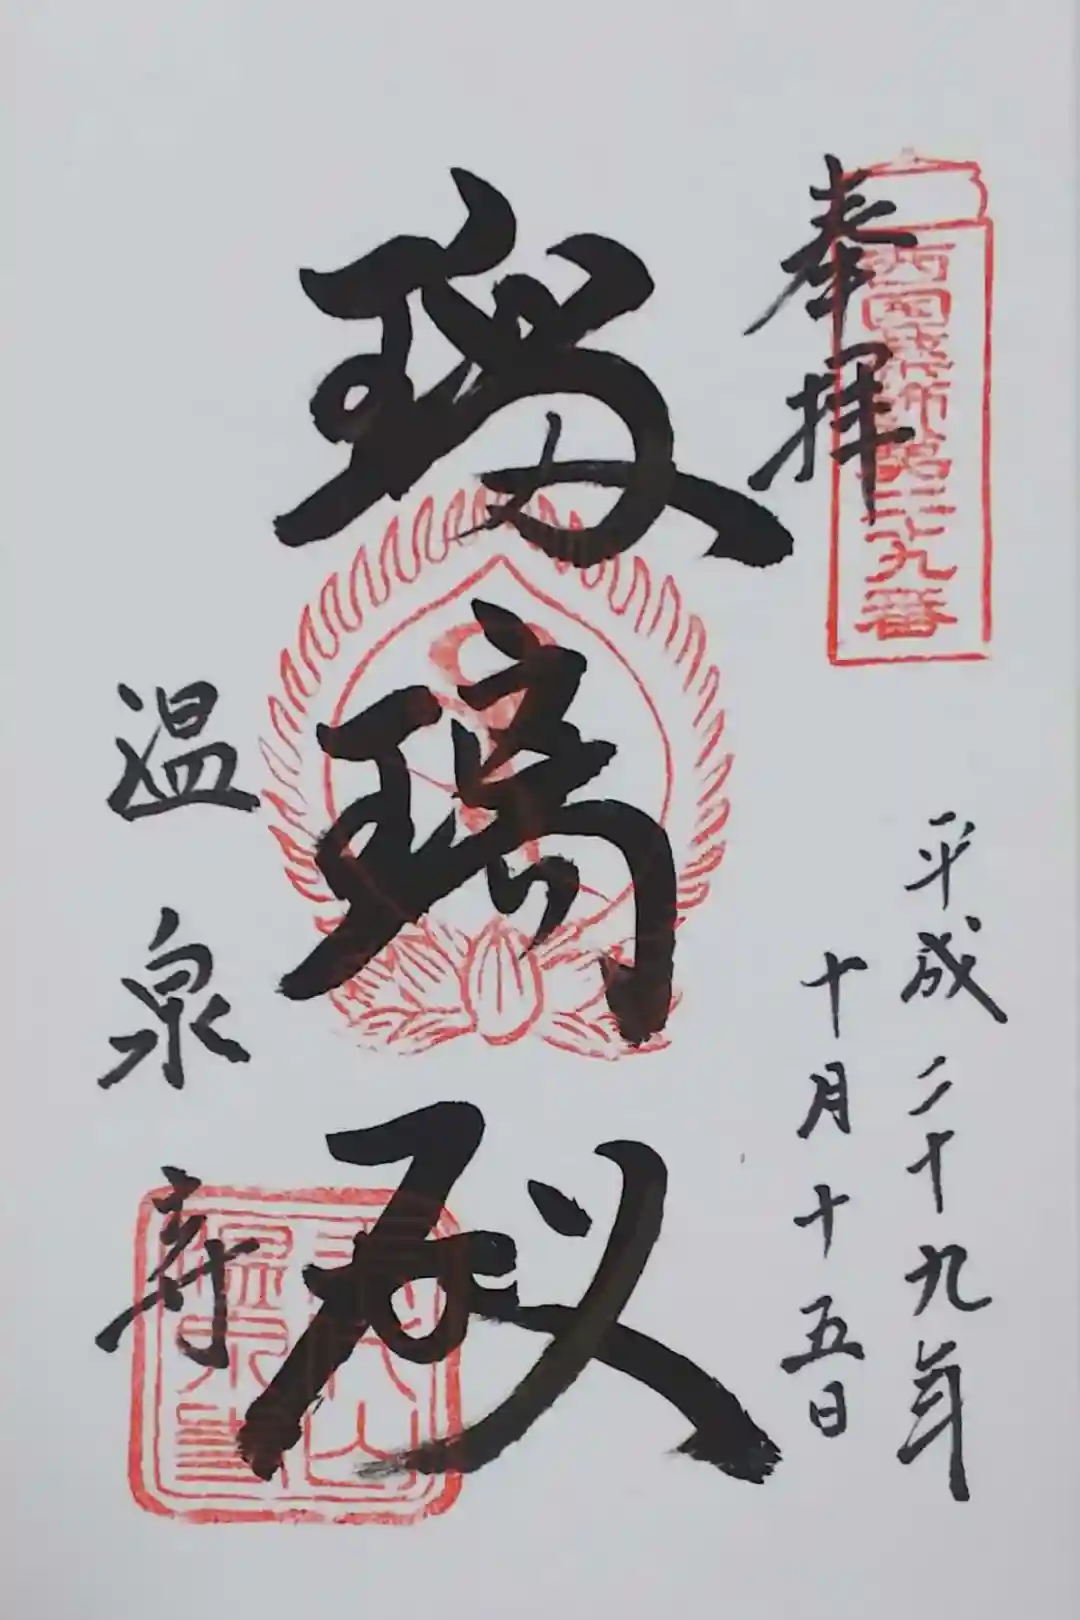 西国薬師第二十九番
奉拝
平成二十九年
十月十五日
瑠璃殿
温泉寺